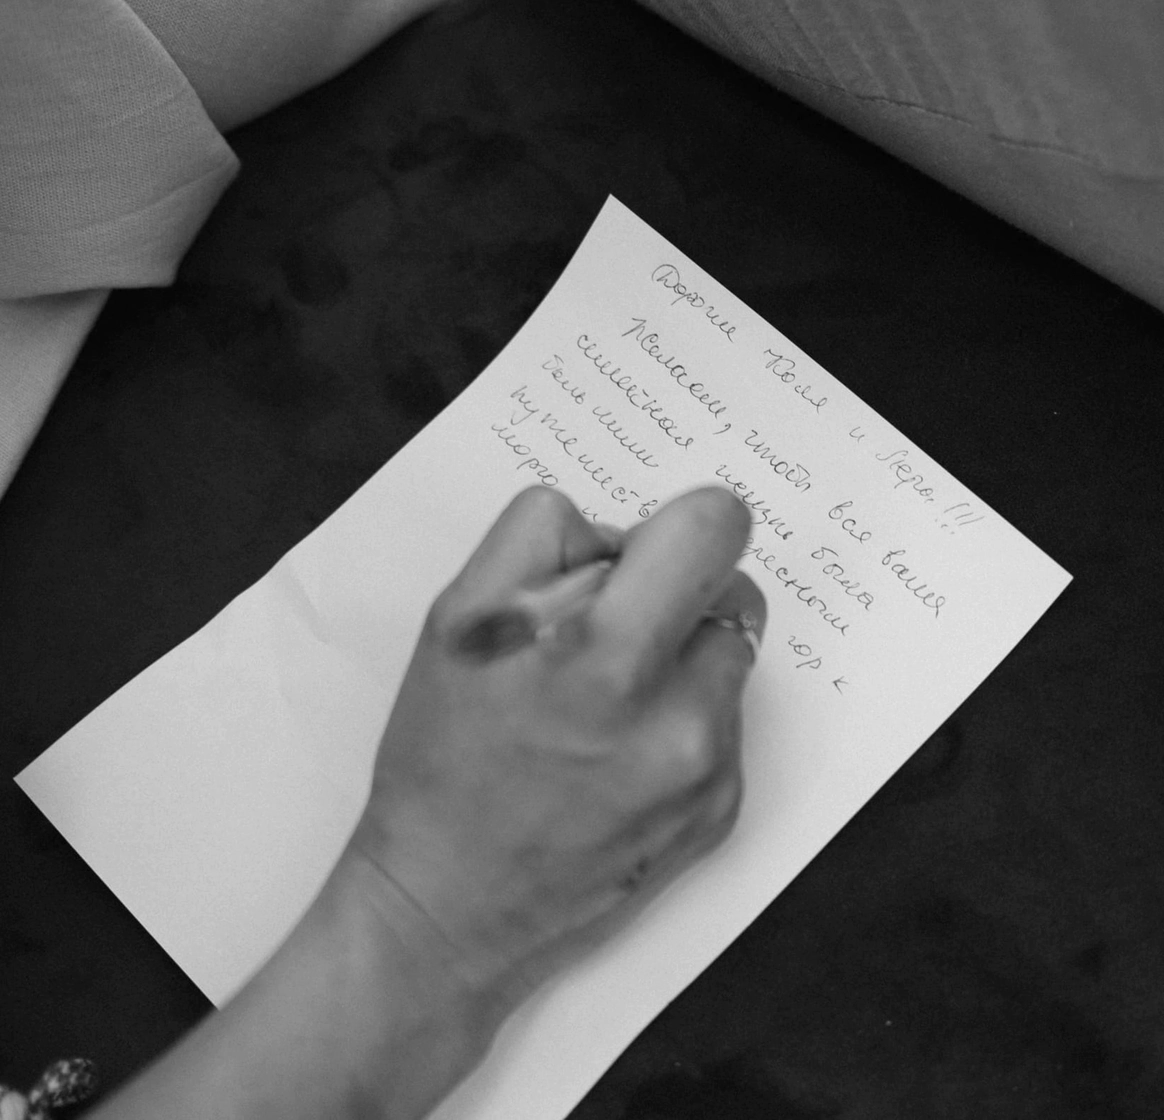 Дорогие Коля и Лера!!!
Желаем, чтобы вся ваша
семейная жизнь была
большим ересным
путешеств гор к
морю и